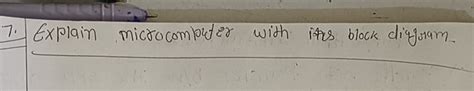 7. Explain microcomputer with its block diagram.